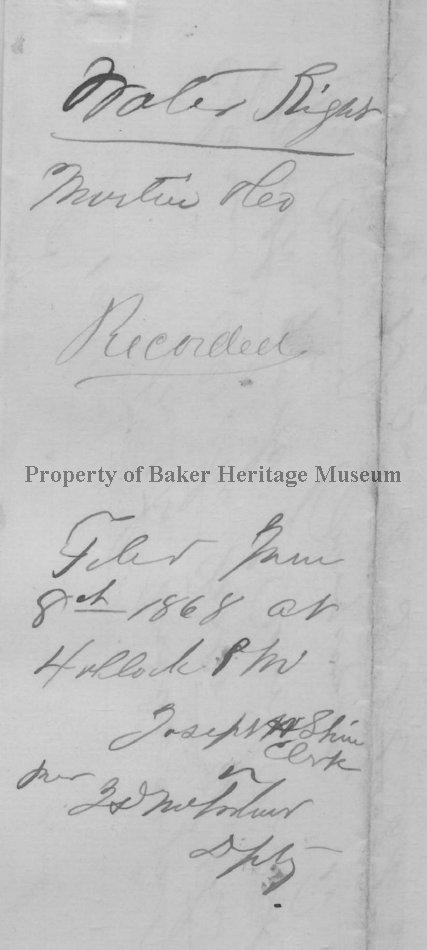 Water Right
Martin Geo
Recorded
Property of Baker Heritage Museum
Filed June
8th 1868 at
4 oclock P M
Joseph H Shinn
Clerk
per
Dpty